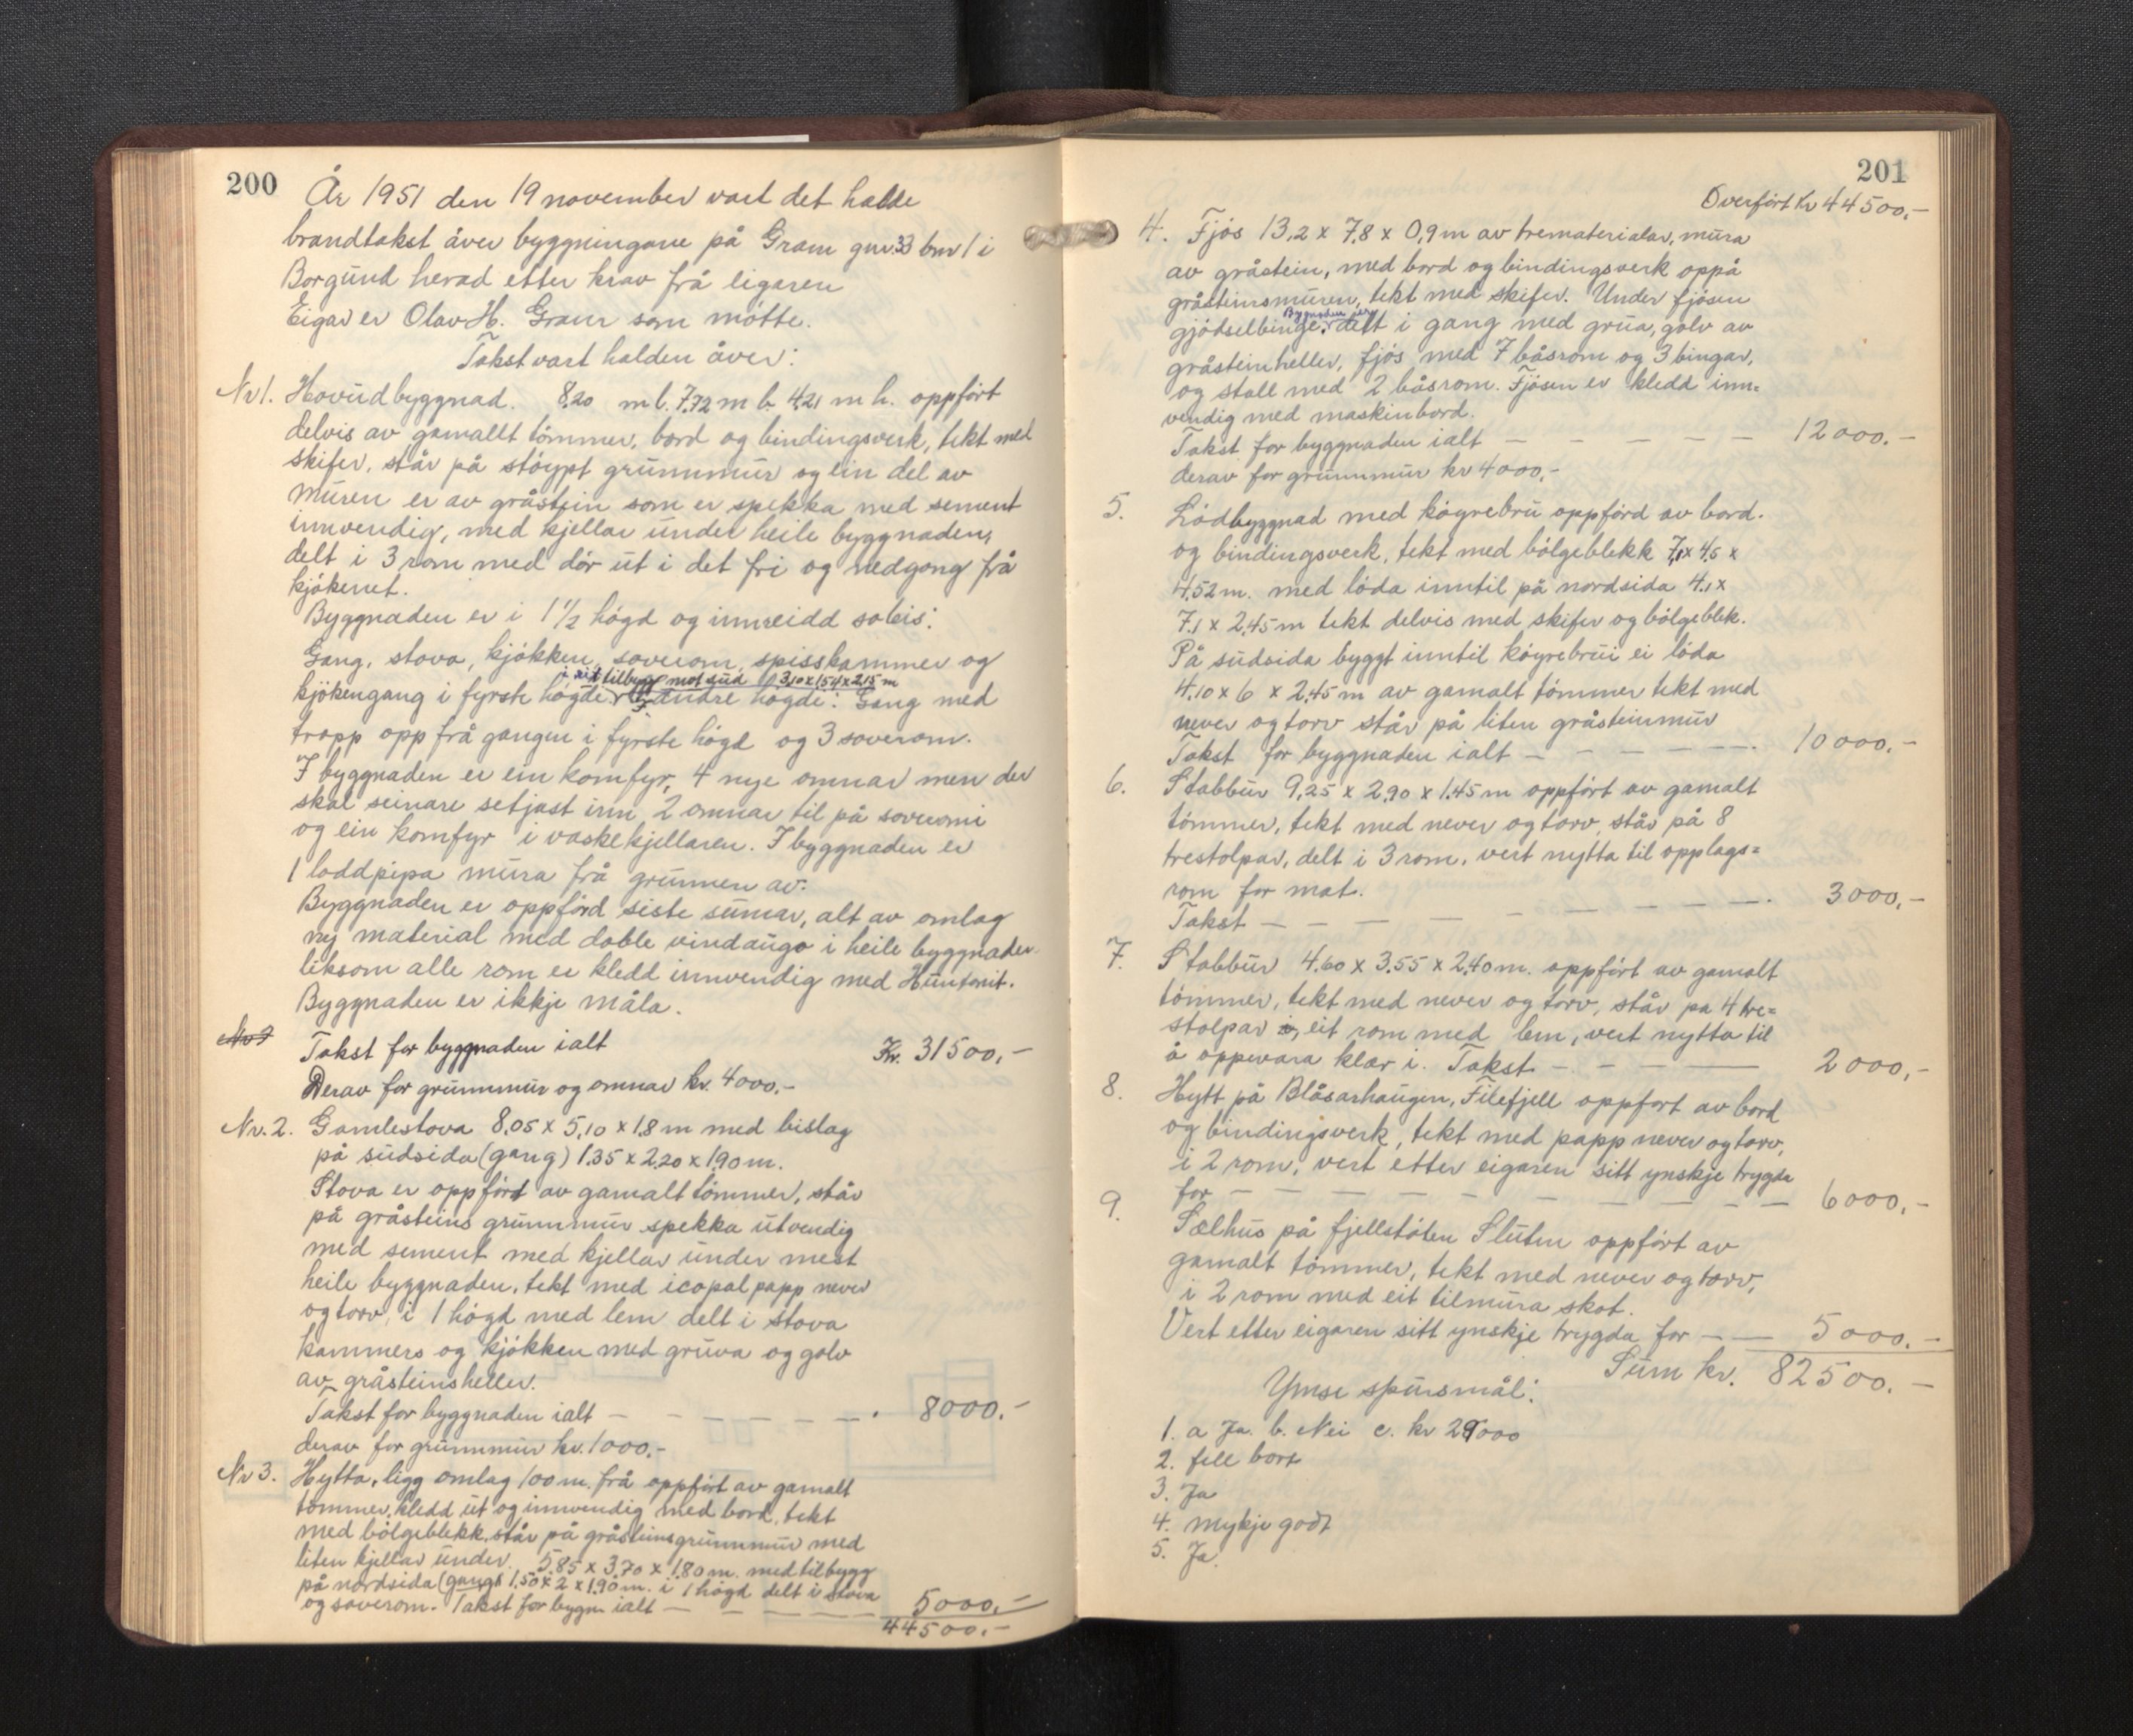 200
År 1951 den 19 november vart det halde
brandtakst åver byggningane på Gram gnr. 33 bnr 1 i
Borgund herad etter krav frå eigaren
Eigar er Olav H. Gram som møtte.
Takst vart halden åver:
Nr 1. Hovudbyggnad. 8,20 m l. 7,72 m b. 4,21 m h. oppført
delvis av gamallt tømmer, bord og bindingsverk, tekt med
skifer, står på støypt grunnmur og ein del av
muren er av gråstein som er spekka med sement
innvendig, med kjellar under heile byggnaden,
delt i 3 rom med dør ut i det fri og nedgong frå
kjøkenet.
Byggnaden er i 1 1/2 høgd og innreidd soleis:
Gang, stova, kjøkken, soverom, spisskammer og
i eit tilbygg mot sud 3,10 x 1,54 x 2,15 m
kjøkengang i fyrste høgdi. I andre høgdi: Gang med
tropp opp frå gangen i fyrste høgd og 3 soverom.
I byggnaden er ein komfyr, 4 nye omnar men der
skal seinare setjast inn 2 omnar til på soveromi
og ein komfyr i vaskekjellaren. I byggnaden er
1 loddpipa mura frå grunnen av.
Byggnaden er oppførd siste sumar, alt av omlag
ny material med doble vindaugo i heile byggnaden
liksom alle rom er kledd innvendig med Huntonit.
Byggnaden er ikkje måla.
Nr 2
Takst for byggnaden ialt Kr. 31500,-
Derav for grunnmur og omnar kr. 4000.-
Nr. 2. Gamlestova 8,05 x 5,10 x 1,8 m med bislag
på sudsida (gang) 1.35 x 2,20 x 1,90 m.
Stova er oppført av gamalt tømmer, står
på gråsteins grunnmur spekka utvendig
med sement med kjellar under mest
heile byggnaden, tekt med icopal papp never
og torv, i 1 høgd med lem delt i stova
kammers og kjøkken med gruva og golv
av gråsteinsheller.
Takst for byggnaden ialt — — — — — —. 8000.-
derav for grunnmur kr. 1000.-
Nr 3. Hytta, ligg omlag 100 m. frå oppført av gamalt
tømmer, kledd ut og innvendig med bord, tekt
med bølgeblekk, står på gråsteinsgrunnmur med
liten kjellar under. 5,85 x 3,70 x 1,80 m. med tilbygg
på nordsida (gang) 1,50 x 2 x 1,90 m. i 1 høgd delt i stova
og soverom. Takst for bygn ialt — — — — 5000,-
44500.-
201
Overført kr 44500,-
4. Fjøs 13,2 x 7,8 x 0,9 m av trematerialar, mura
av gråstein, med bord og bindingsverk oppå
gråsteinsmuren, tekt med skifer. Under fjøsen
Bygnaden er
gjødselbinge. delt i gang med grua, golv av
gråsteinheller, fjøs med 7 båsrom og 3 bingar,
og stall med 2 båsrom. Fjøsen er kledd inn=
vendig med maskinbord.
Takst for byggnaden ialt — — — — — 12000.-
derav for grunnmur kr 4000,-
5. Lødbyggnad med køyrebru oppførd av bord.
og bindingsverk, tekt med bølgeblekk 7,1 x 4,5 x
4,52 m. med løda inntil på nordsida 4,1 x
7,1 x 2,45 m tekt delvis med skifer og bølgeblek.
På sudsida byggt inntil køyrebrui ei løda
4,10 x 6 x 2,45 m av gamalt tømmer tekt med
never og torv står på liten gråsteinmur
Takst for byggnaden ialt — — — — — —. 10000,-
6. Stabbur 9,25 x 2,90 x 1,45 m oppført av gamalt
tømmer, tekt med never og torv, står på 8
trestolpar, delt i 3 rom, vert nytta til opplags=
rom for mat.
Takst — — — — — — — — —. 3000,-
7. Stabbur 4,60 x 3,55 x 2,40 m. oppført av gamalt
tømmer, tekt med never og torv, står på 4 tre=
stolpar eit rom med lem, vert nytta til
å oppevara klær i. Takst — — — — 2000,-
8. Hytt på Blåsarhaugen, Filefjell oppført av bord
og bindingsverk, tekt med papp never og torv,
i 2 rom, vert etter eigaren sitt ynskje trygda
for — — — — — — — — — 6000,-
9. Sælhus på fjellstølen Sluten oppført av
gamalt tømmer, tekt med never og torv,
i 2 rom med eit tilmura skot.
Vert etter eigaren sitt ynskje trygda for — — 5000.-
Sum kr. 82500.-
Ymse spursmål:
1. a Ja. b. Nei c. kr 29000
2. fell bort
3. Ja
4. mykje godt
5. Ja.